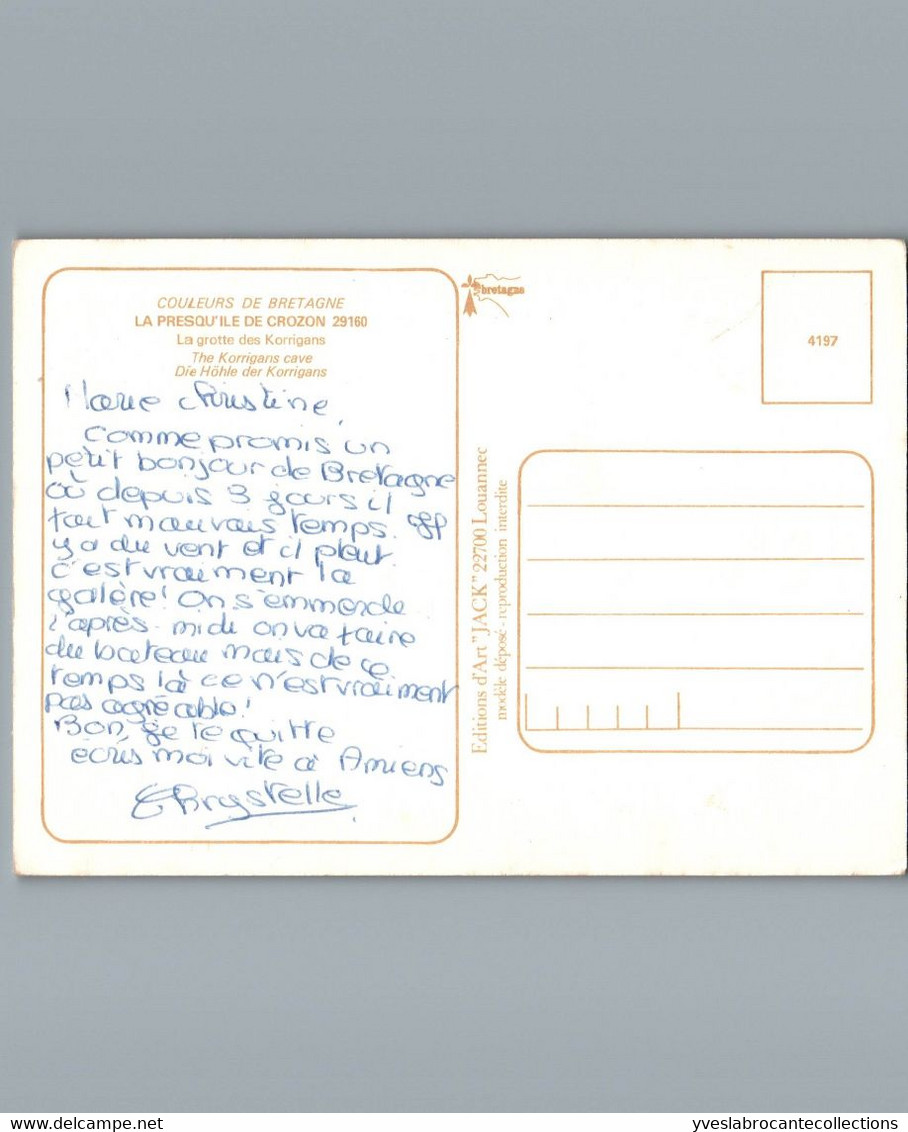 COULEURS DE BRETAGNE
LA PRESQU'ILE DE CROZON 29160
La grotte des Korrigans
The Korrigans cave
Die Höhle der Korrigans
Marie Christine,
Comme promis un
petit bonjour de Bretagne
où depuis 3 jours il
fait mauvais temps.
y a du vent et il pleut.
c'est vraiment la
galère! On s'emmerde
l'après-midi on va faire
du bateau mais de ce
temps là ce n'est vraiment
pas agréable!
Bon, je te quitte
écris moi vite à Amiens
Chrystelle
bretagne
4197
Editions d'Art "JACK" 22700 Louannec
modèle déposé - reproduction interdite
yveslabrocantecollections